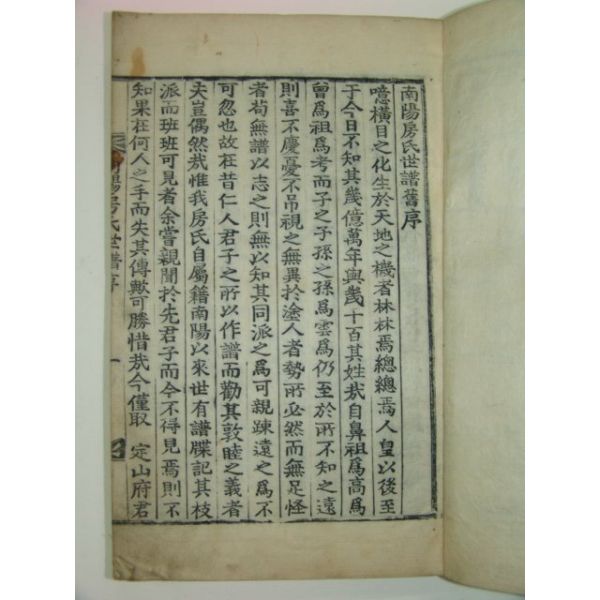 南陽房氏世譜舊序
噫橫目之化生於天地之機者林林焉總總焉人皇以後至
于今日不知其幾億萬年與幾十百其姓哉自鼻祖爲高爲
曾爲祖爲考而子之子孫之孫爲雲爲仍至於所不知之遠
則喜不慶憂不吊視之無異於塗人者勢所必然而無足怪
者苟無譜以志之則無以知其同派之爲可親踈遠之爲不
可忽也故在昔仁人君子之所以作譜而勸其敦睦之義者
夫豈偶然哉惟我房氏自屬籍南陽以來世有譜牒記其枝
派而班班可見者余嘗親聞於先君子而今不得見焉則不
知果在何人之手而失其傳歟可勝惜哉今僅取 定山府君
南陽房氏世譜序 一